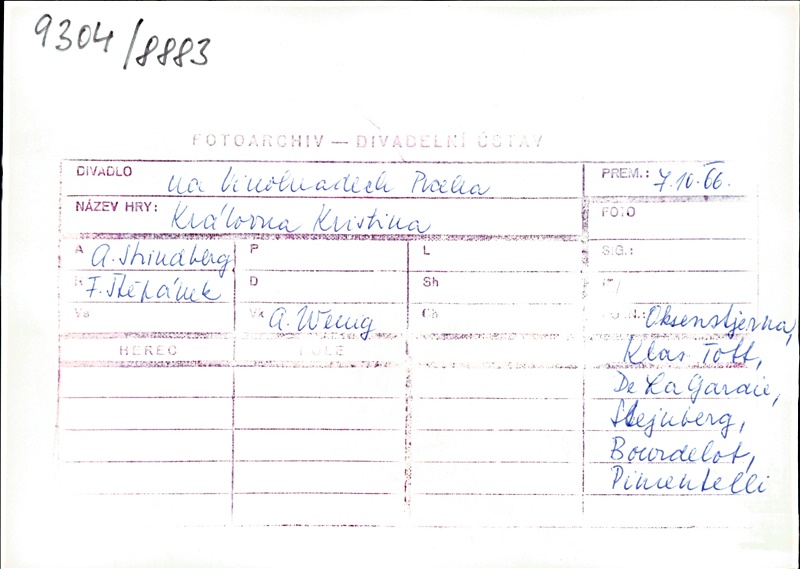 9304/8883
FOTOARCHIV — DIVADELNÍ ÚSTAV
DIVADLO na Vinohradech Praha PREM.: 7.10.66.
NÁZEV HRY: Královna Kristina FOTO
A A. Strindberg P L SIG.:
R F. Štěpánek D Sh
Vs Vk A. Wenig Ch POZN.: Oksenstjerna,
HEREC ROLE Klas Tott,
De La Gardie,
Stejnberg,
Bourdelot,
Pimentelli